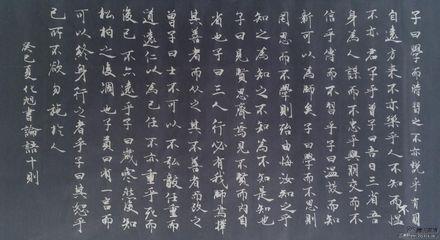 子曰學而時習之不亦說乎有朋
自遠方来不亦樂乎人不知而不慍
不亦君子乎曾子曰吾日三省吾
身為人謀而不忠乎與朋友交而不
信乎傳而不習乎子曰溫故而知
新可以為師矣子曰學而不思則
罔思而不學則殆由誨汝知之乎
知之為知之不知為不知是知也
子曰見賢思齊焉見不賢而內自
省也子曰三人行必有我師焉擇
其善者而從之其不善者而改之
曾子曰士不可以不弘毅任重而
道遠仁以為己任不亦重乎死而
後已不亦遠乎子曰歲寒然後知
松柏之後凋也子貢曰有一言而
可以終身行之者乎子曰其恕乎
己所不欲勿施於人
癸巳夏化旭書論語十則